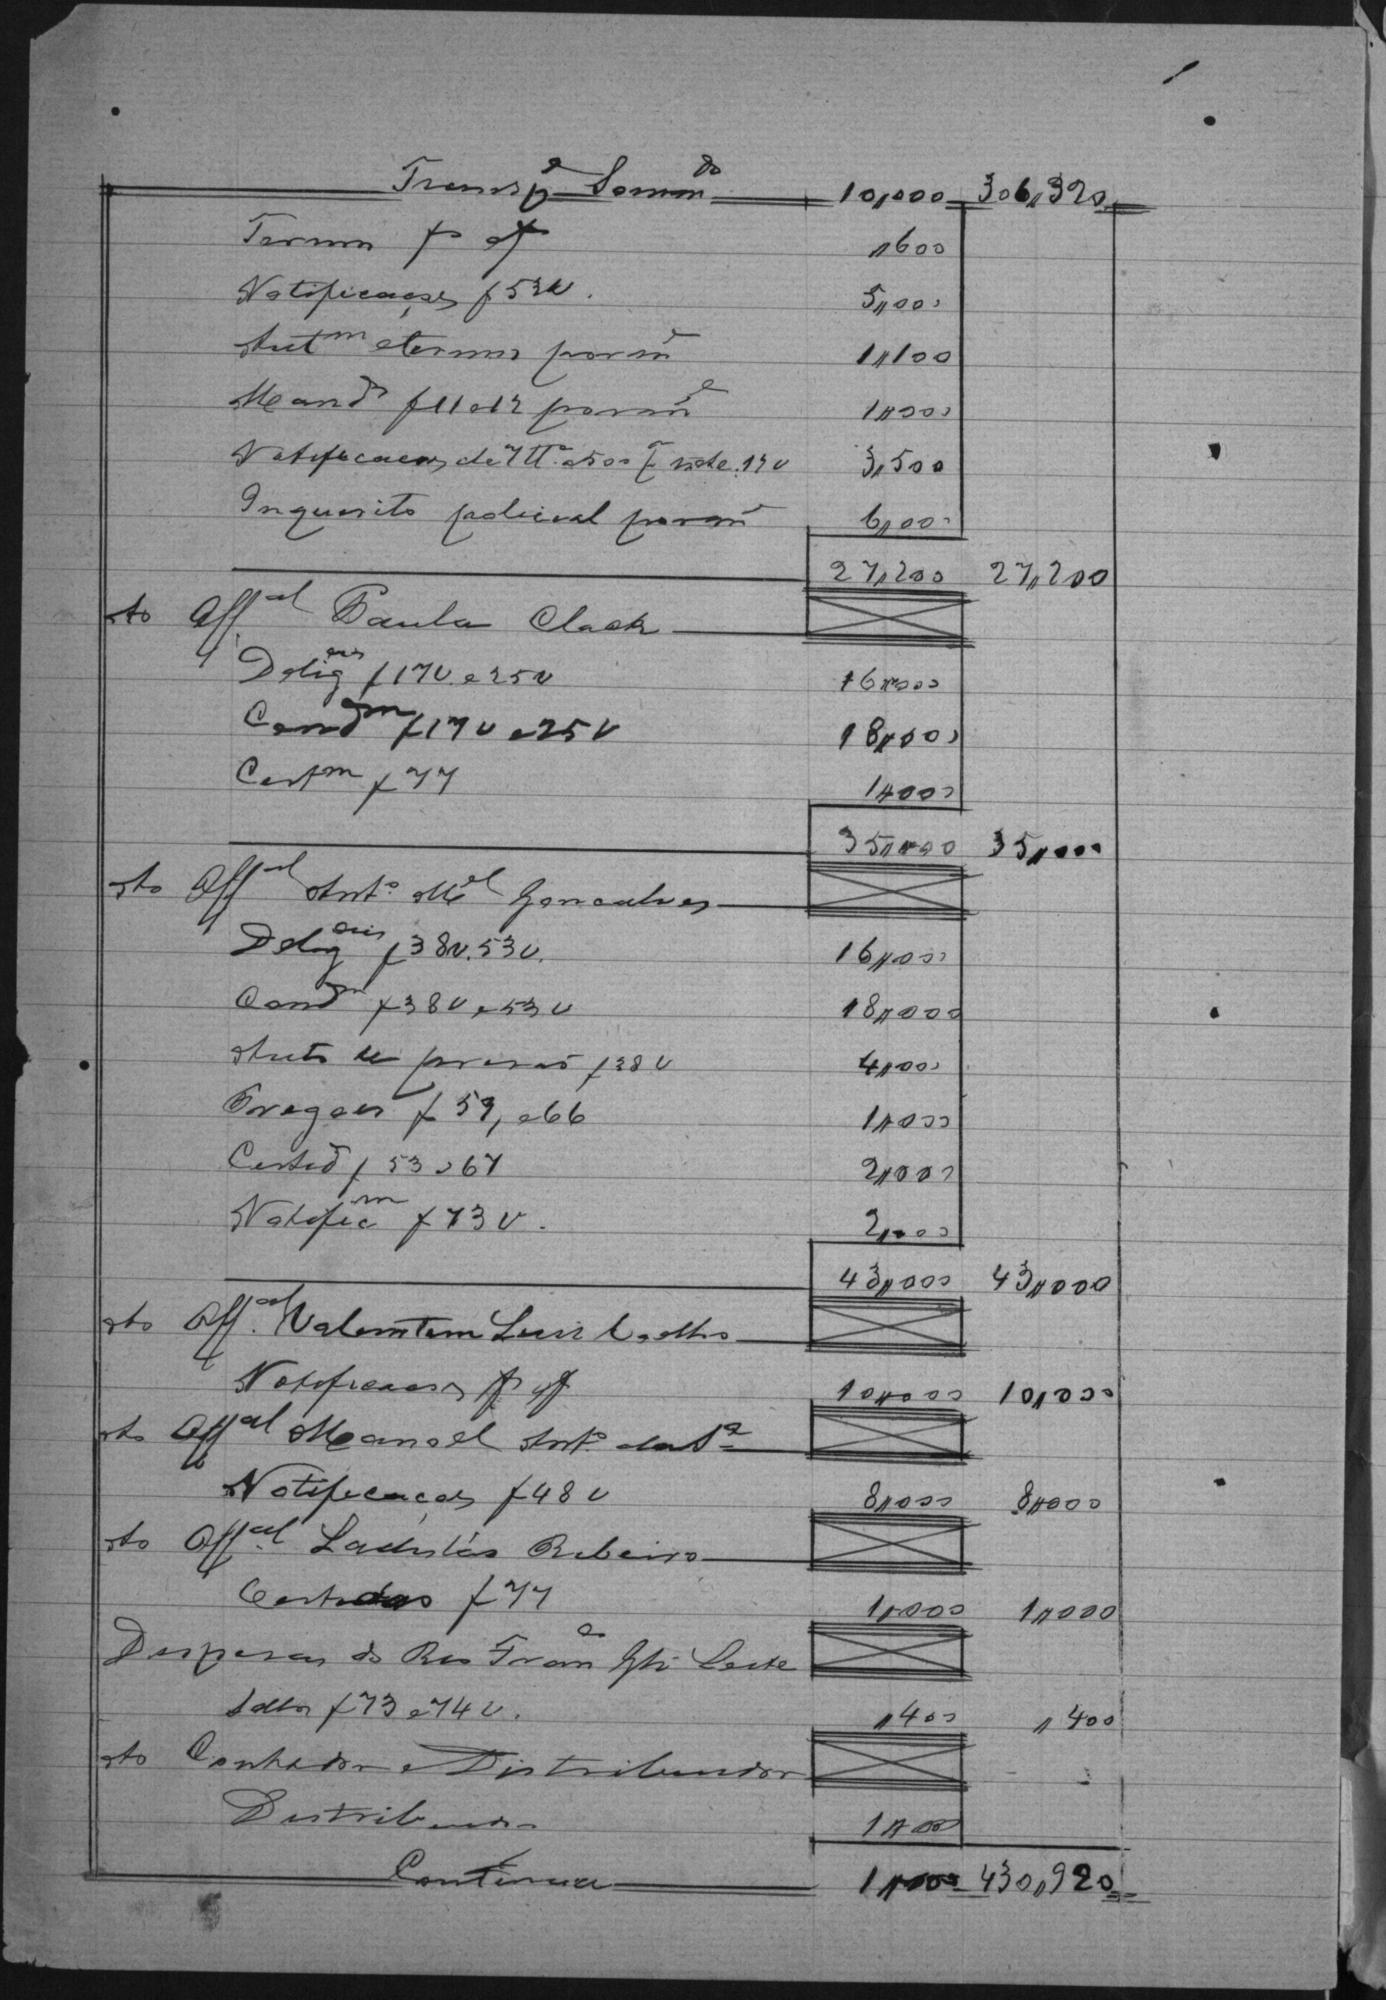 Transpe Sommdo 10,000 306,320
Termos f e f ,600
Notificações f 53v. 5,000
Autm e termos por m.e 1,100
Mando f 11 e 12 por m.e 1,000
Notificacoes de e 500 f 19v 3,500
Inquerito policial por m.e 6,000
27,200 27,200
Ao Offal Paula Clack
Deligcias f 17v e 25v 16,000
Condm f 17v e 25v 18,000
Certm f 77 1,000
35,000 35,000
Ao Offal Anto Mel Goncalves
Deligcias f 38v. 53v. 16,000
Condm f 38v e 53v 18,000
Auto de prisão f 38v 4,000
Pregoes f 59, e 66 1,000
Certid f 53 e 67 2,000
Notificm f 73v. 2,000
43,000 43,000
Ao Offal Valentim Luiz Coelho
Notificacoes f e f 10,000 10,000
Ao Offal Manoel Anto da Sa
Notificações f 48v 8,000 8,000
Ao Offal Ladislás Ribeiro
Certidão f 77 1,000 1,000
Despesas do Reo Franco Leite
Sellos f 73 e 74v. ,400 ,400
Ao Contador e Distribuidor
Distribuição 1,000
Continua 1,000 430,920